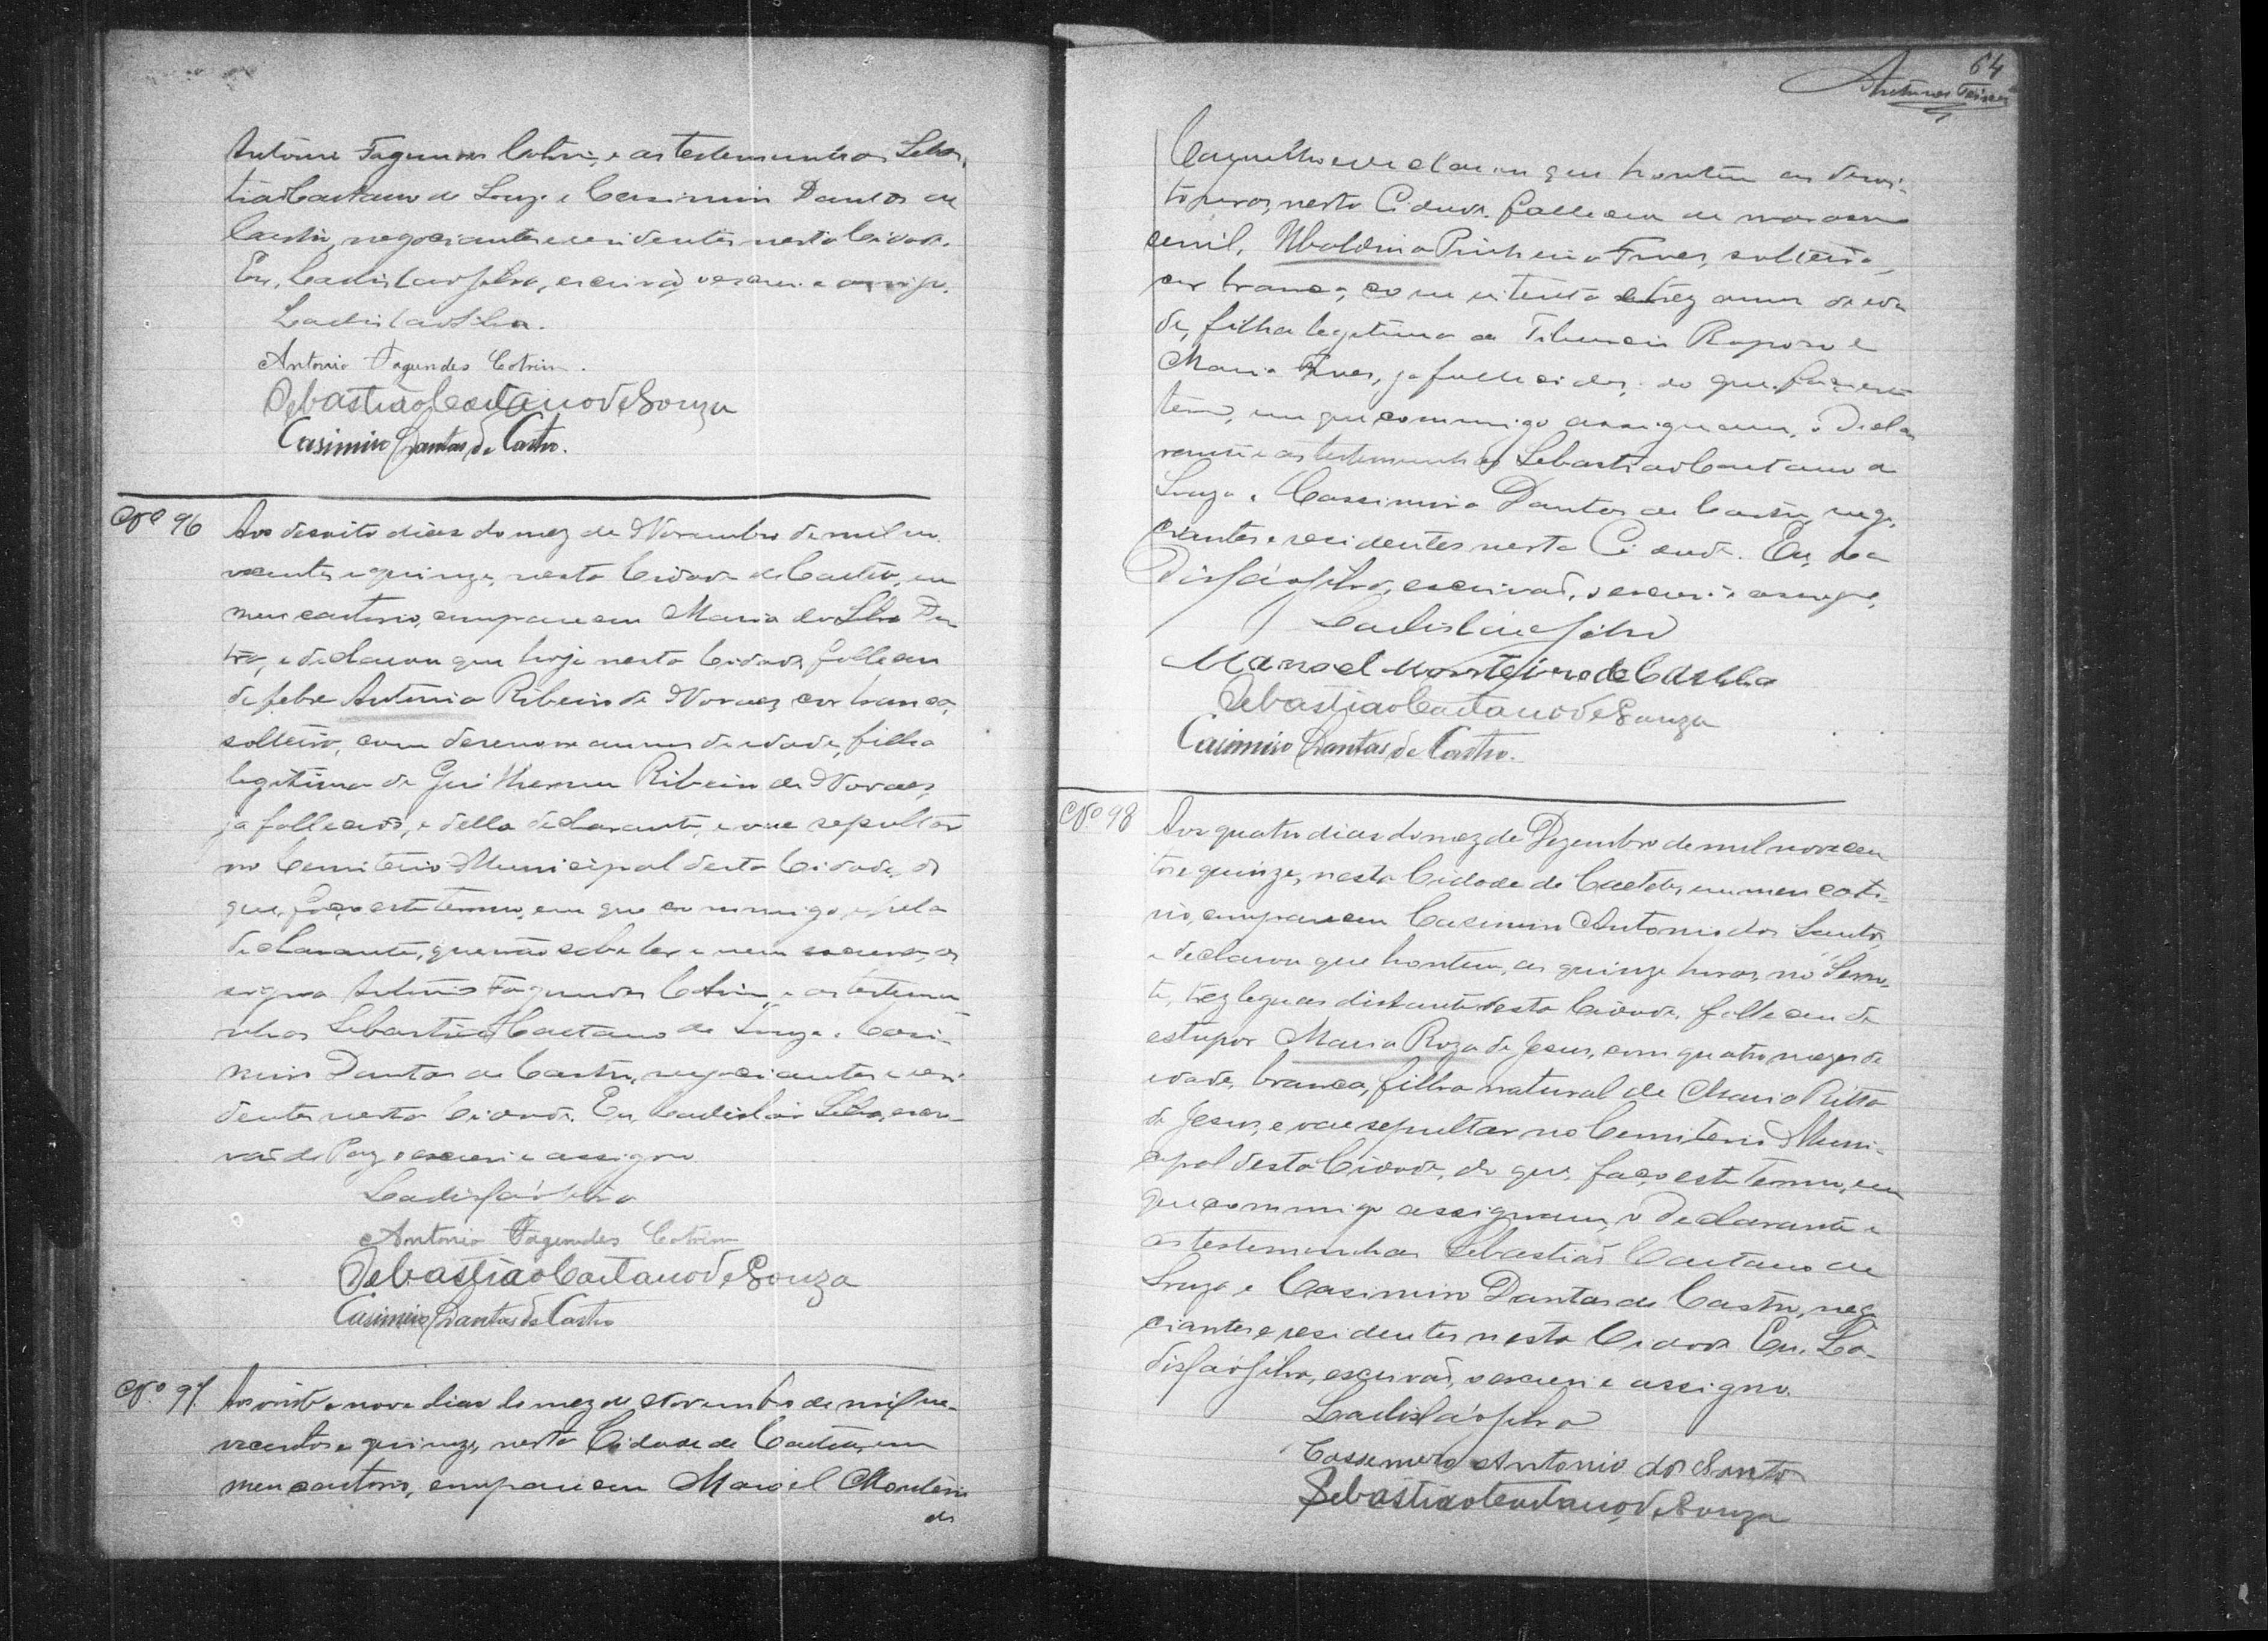 Antônio Fagundes Cotrim, e as testemunhas Sebas-
tião Caetano de Souza e Casimiro Dantas de
Castro, negociantes e residentes nesta Cidade.
Eu, Ladisláo Silva, escrivão, o escrevi e assigno.
Ladisláo Silva.
Antonio Fagundes Cotrim.
Sebastião Caetano de Souza
Casimiro Dantas de Castro.
Nº 96
Aos desoito dias do mez de Novembro de mil no-
vecentos e quinze, nesta Cidade de Caeteté, em
meu cartorio, compareceu Maria da Silva
e declarou que hoje nesta Cidade falleceu
de febre Antonia Ribeiro de Novaes, cor branca,
solteira, com desenove annos de edade, filha
legitima de Guilherme Ribeiro de Novaes,
ja fallecido, e della declarante, e vae sepultar
no Cemiterio Municipal desta Cidade, do
que, faço este termo, em que commigo, e pela
declarante, que não sabe ler e nem escrever, as-
signa Antônio Fagundes Cotrim, e as testemu-
nhas Sebastião Caetano de Souza e Casi-
miro Dantas de Castro, negociantes e resi-
dentes nesta Cidade. Eu, Ladisláo Silva, escri-
vão de Paz, o escrevi e assigno
Ladisláo Silva
Antonio Fagundes Cotrim
Sebastião Caetano de Souza
Casimiro Dantas de Castro
Nº 97.
Aos vinte e nove dias do mez de Novembro de mil no-
vecentos e quinze, nesta Cidade de Caeteté, em
meu cartorio, compareceu Manoel Monteiro
de
64
Antunes
e declarou que hontem as desoi-
to horas, nesta Cidade, falleceu de marasmo
senil, Ubaldina Pinheiro solteira,
cor branca, com oitenta e trez annos de eda-
de, filha legitima de Tiburcio Raposo e
Maria ja fallecidos; do que, faço este
termo, em que commigo assignam, o Decla-
rante e as testemunhas Sebastião Caetano de
Souza e Cassimiro Dantas de Castro, nego-
ciantes e residentes nesta Cidade. Eu, La-
disláo Silva, escrivão, o escrevi e assigno,
Ladisláo Silva
Manoel Monteiro de
Sebastião Caetano de Souza
Casimiro Dantas de Castro.
Nº 98
Aos quatro dias do mez de Dezembro de mil novecen-
tos e quinze, nesta Cidade de Caeteté, em meu carto-
rio, compareceu Casimiro Antonio dos Santos,
e declarou que hontem, as quinze horas, no
trez leguas distante desta Cidade, falleceu de
estupor Maria Roza de Jesus, com quatro mezes de
edade, branca, filha natural de Maria Ritta
de Jesus, e vae sepultar no Cemiterio Muni-
cipal desta Cidade, do que, faço este termo, em
que commigo assignam, o Declarante e
as testemunhas Sebastião Caetano de
Souza e Casimiro Dantas de Castro, nego-
ciantes e residentes nesta Cidade Eu, La-
disláo Silva, escrivão, o escrevi e assigno.
Ladisláo Silva
Cassemero Antonio dos Santos
Sebastião Caetano de Souza